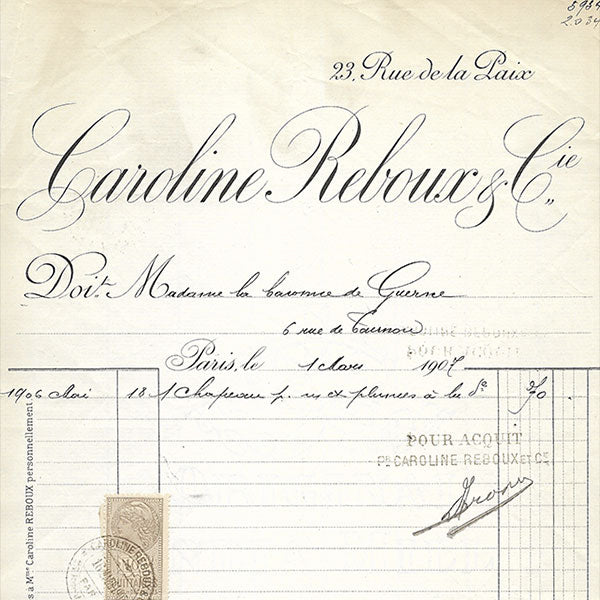 5984
2.034
23, Rue de la Paix
Caroline Reboux & Cie
Doit Madame la baronne de Guerne
6 rue de Tournon
Paris, le 1 Mars 1907
1906 Mai 18 1 Chapeau p. et plumes à la Sé 70
POUR ACQUIT
Pn CAROLINE REBOUX ET Cie
s à Mme Caroline REBOUX personnellement
CAROLINE REBOUX &
10